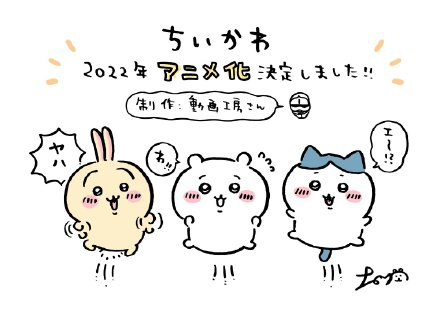 ちいかわ
2022年 アニメ化 決定しました!!
制作:動画工房さん
ヤハ
わっ
エ〜!?